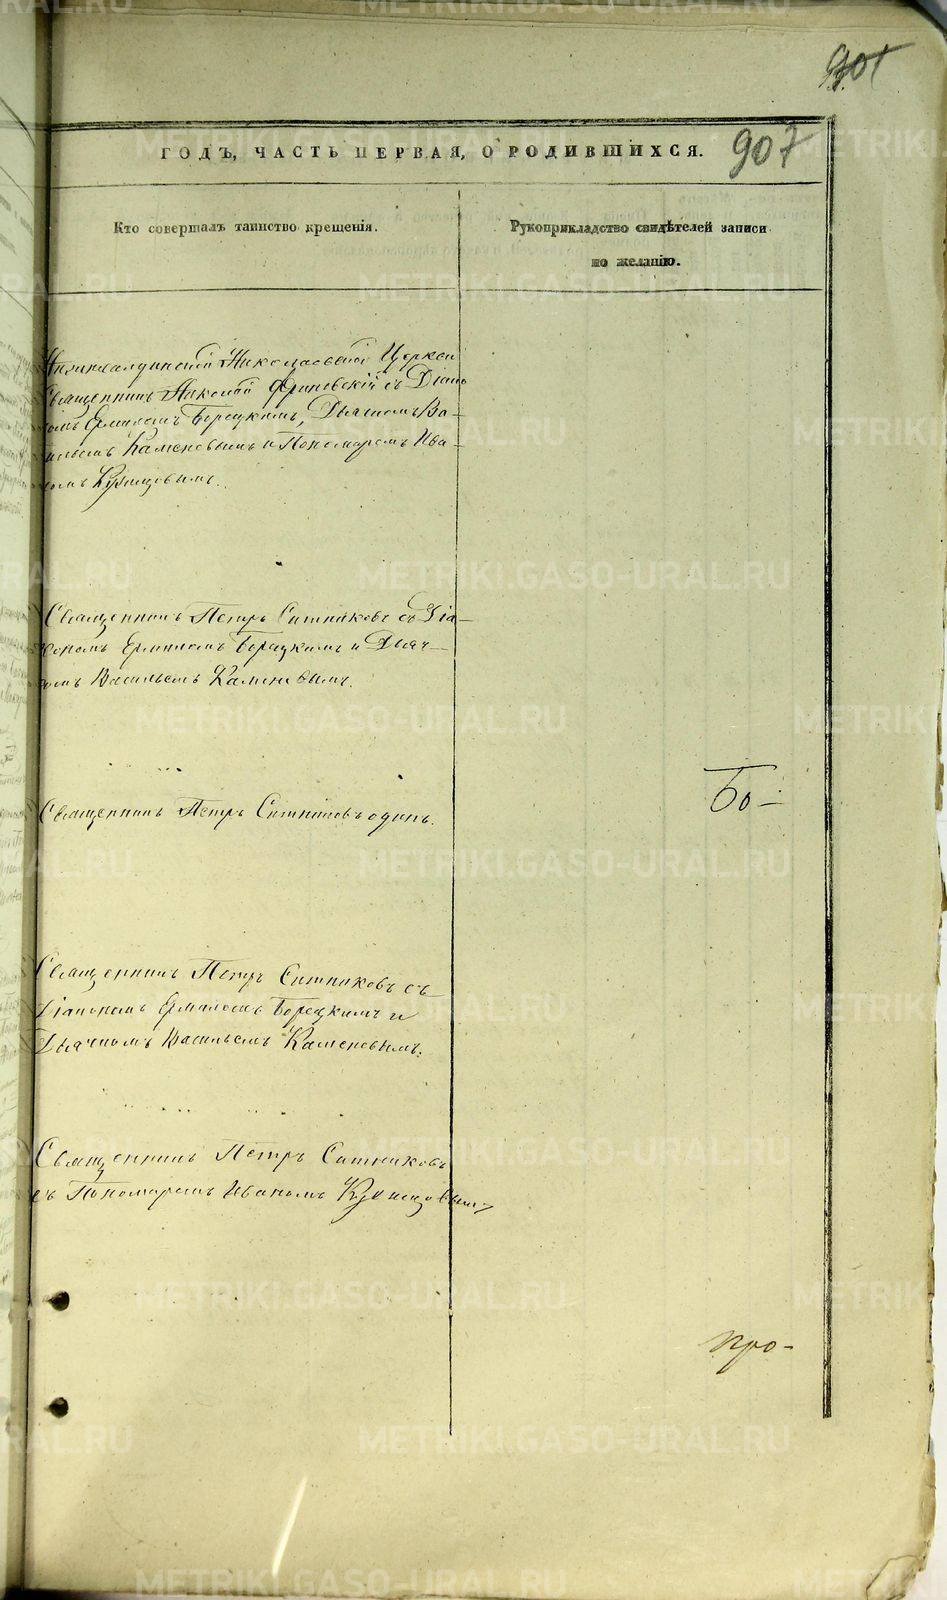 901
907
ГОДЪ, ЧАСТЬ ПЕРВАЯ, О РОДИВШИХСЯ.
Кто совершалъ таинство крещенія.
Рукоприкладство свидѣтелей записи
по желанію.
Николаевской Церкви
Священникъ съ Діако
номъ Ермиломъ Борецкимъ, Дьячкомъ Ва-
сильемъ Каменевымъ и Пономаремъ Ива-
номъ Кузнецовымъ.
Священникъ Петръ Ситниковъ съ Діа-
кономъ Ермиломъ Борецкимъ и Дьяч-
комъ Васильемъ Каменевымъ.
Священникъ Петръ Ситниковъ одинъ.
Бо-
Священникъ Петръ Ситниковъ съ
Діакономъ Ермиломъ Борецкимъ и
Дьячкомъ Васильемъ Каменевымъ.
Священникъ Петръ Ситниковъ
съ Пономаремъ Иваномъ Кузнецовым
про-
METRIKI.GASO-URAL.RU